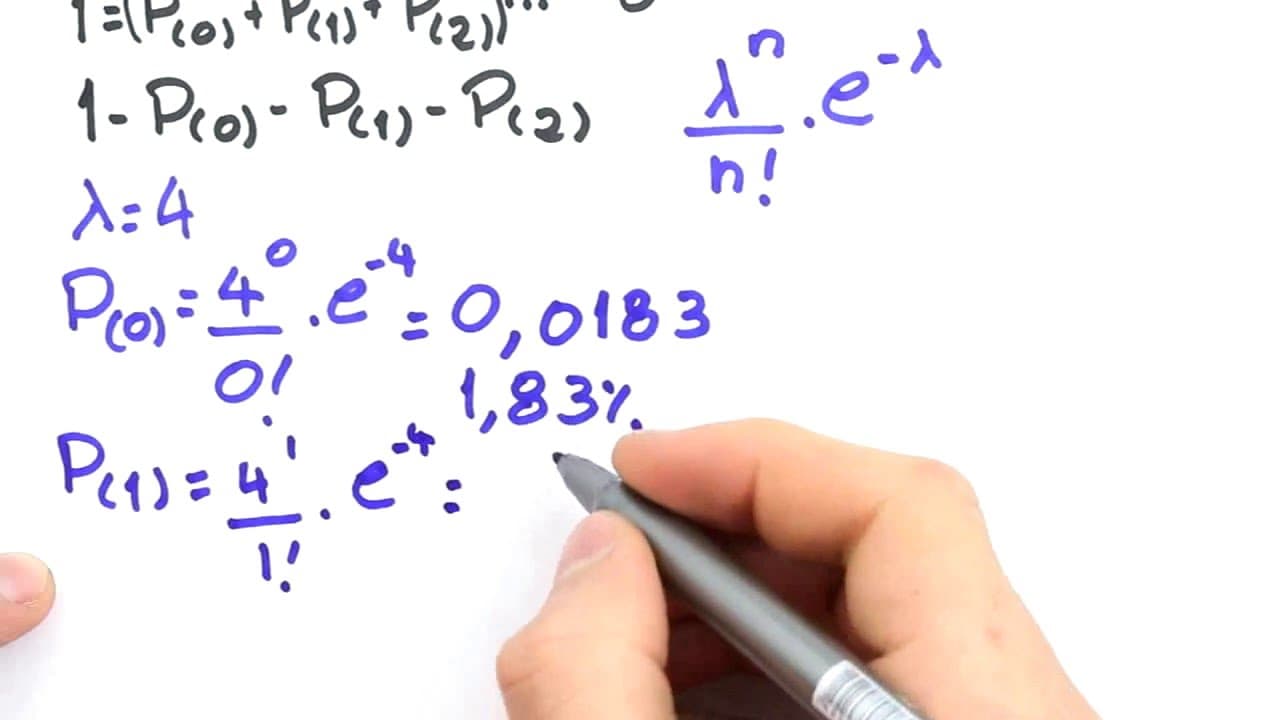 1=(P(0)+P(1)+P(2))...
1-P(0)-P(1)-P(2)
λ^n/n! . e^-λ
λ=4
P(0)=4^0/0! . e^-4 = 0,0183
1,83%
P(1)=4^1/1! . e^-4 =